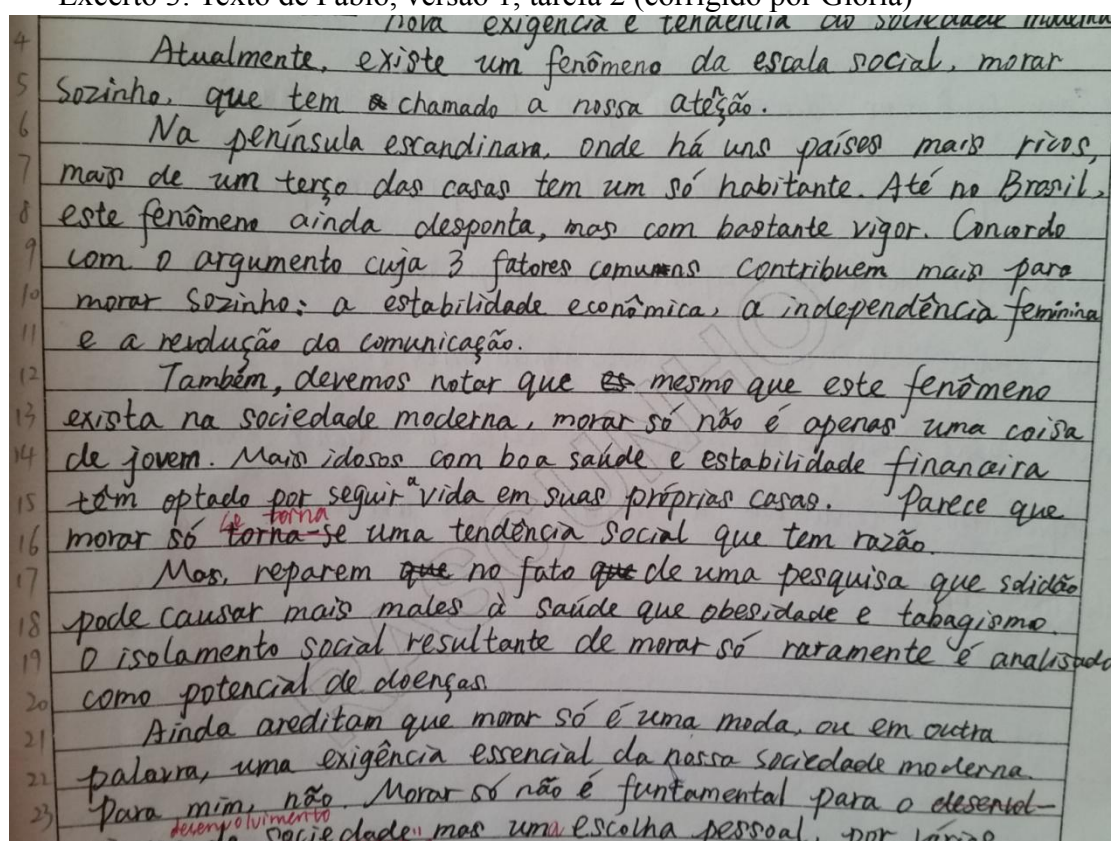 Excerto 3: Texto de Fábio, versão 1, tarefa 2 (corrigido por Glória)
nova exigência e tendência da sociedade moderna
4 Atualmente, existe um fenômeno da escala social, morar
5 Sozinho, que tem chamado a nossa atenção.
6 Na península escandinava, onde há uns países mais ricos,
7 mais de um terço das casas tem um só habitante. Até no Brasil,
8 este fenômeno ainda desponta, mas com bastante vigor. Concordo
9 com o argumento cuja 3 fatores comuns contribuem mais para
10 morar sozinho: a estabilidade econômica, a independência feminina
11 e a revolução da comunicação.
12 Também, devemos notar que mesmo que este fenômeno
13 exista na sociedade moderna, morar só não é apenas uma coisa
14 de jovem. Mais idosos com boa saúde e estabilidade financeira
15 têm optado por seguir a vida em suas próprias casas. Parece que
se torna
16 morar só torna-se uma tendência social que tem razão.
17 Mas, reparem que no fato que de uma pesquisa que solidão
18 pode causar mais males à saúde que obesidade e tabagismo.
19 O isolamento social resultante de morar só raramente é analisado
20 como potencial de doenças.
21 Ainda areditam que morar só é uma moda, ou em outra
22 palavra, uma exigência essencial da nossa sociedade moderna.
23 Para mim, não. Morar só não é funtamental para o desenvol-
desenvolvimento
sociedade, mas uma escolha pessoal, por
RASCUNHO